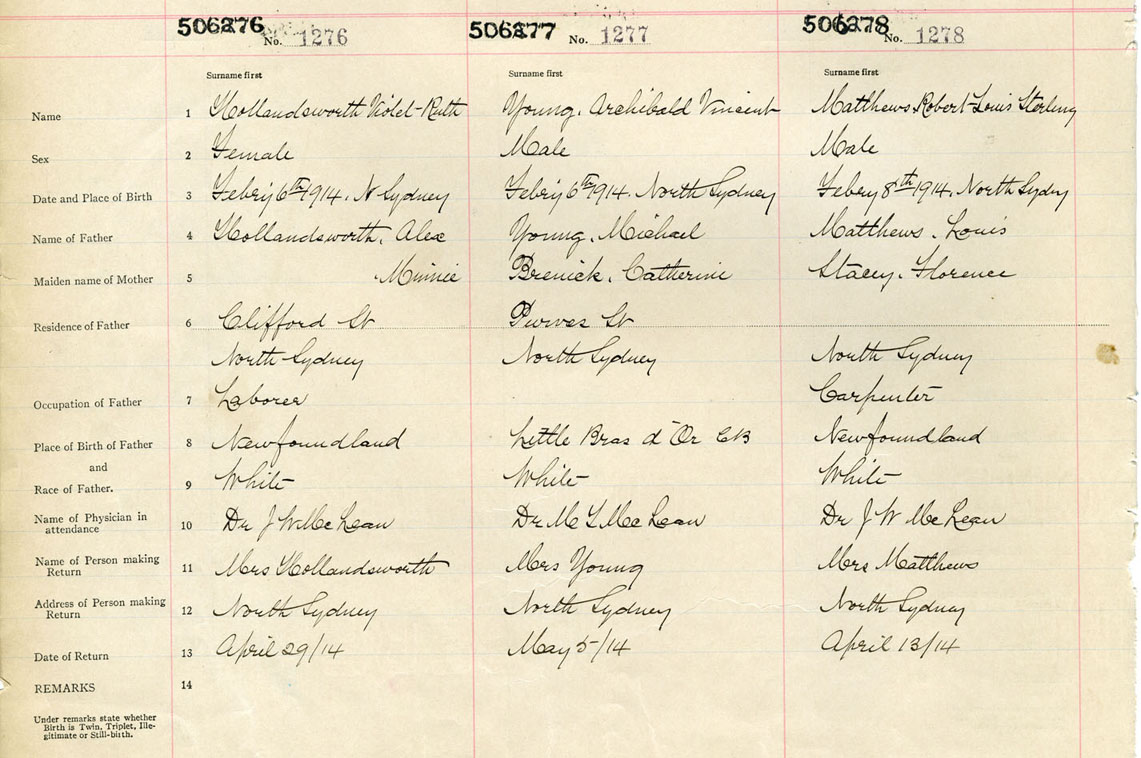 506276 No. 1276 506277 No. 1277 506278 No. 1278
Surname first Surname first Surname first
Name 1 Hollandsworth Violet-Ruth Young, Archibald Vincent Matthews, Robert Louis Sterling
Sex 2 Female Male Male
Date and Place of Birth 3 Febry 6th 1914. N Sydney Febry 6th 1914. North Sydney Febry 8th 1914. North Sydny
Name of Father 4 Hollandsworth, Alex Young, Michael Matthews, Louis
Maiden name of Mother 5 Minnie Brenick, Catherine Stacey, Florence
Residence of Father 6 Clifford St Purves St
North Sydney North Sydney North Sydney
Occupation of Father 7 Laborer Carpenter
Place of Birth of Father 8 Newfoundland Little Bras d'Or CB Newfoundland
and
Race of Father. 9 White White White
Name of Physician in
attendance 10 Dr J W McLean Dr McLean Dr J W McLean
Name of Person making
Return 11 Mrs Hollandsworth Mrs Young Mrs Matthews
Address of Person making
Return 12 North Sydney North Sydney North Sydney
Date of Return 13 April 29/14 May 5/14 April 13/14
REMARKS 14
Under remarks state whether
Birth is Twin, Triplet, Ille-
gitimate or Still-birth.